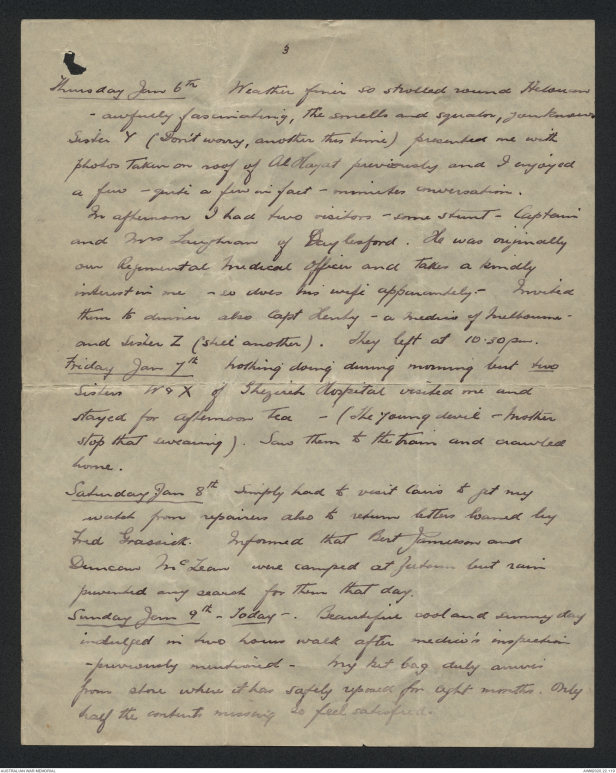 3
Thursday Jan 6th Weather finer so strolled round Helouan
- awfully fascinating, the smells and squalor, you know
Sister Y (Don't worry, another this time) presented me with
photos taken on roof of Al Hayat previously and I enjoyed
a few - quite a few in fact - minutes conversation.
In afternoon I had two visitors - some stunt - Captain
and Mrs Laughran of Daylesford. He was originally
our Regimental Medical Officer and takes a kindly
interest in me - so does his wife apparently - Invited
them to dinner also Capt Henty - a medico of Melbourne -
and Sister Z (still another). They left at 10.30pm.
Friday Jan 7th Nothing doing during morning but two
Sisters W & X of Ghezireh Hospital visited me and
stayed for afternoon tea - (The young devil - Mother
stop that swearing). Saw them to the train and crawled
home.
Saturday Jan 8th Simply had to visit Cairo to get my
watch from repairers also to return letters loaned by
Fred Grassick. Informed that Bert Jameson and
Duncan McLean were camped at Zeitoun but rain
prevented any search for them that day.
Sunday Jan 9th - Today -. Beautiful cool and sunny day
indulged in two hours walk after medico's inspection
- previously mentioned - My kit bag duly arrives
from store where it has safely reposed for eight months. Only
half the contents missing so feel satisfied.
AUSTRALIAN WAR MEMORIAL